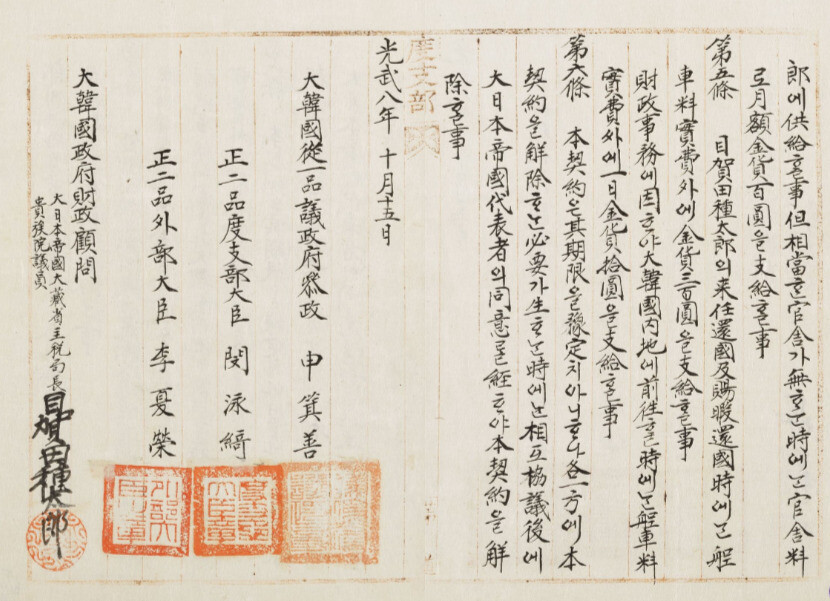 郎에供給홀事但相當호官舍가無호는時에는官舍料
로月額金貨百圓을支給홀事
第五條 目賀田種太郎의来任還國及賜暇還國時에는舩
車料實費外에金貨三百圓을支給홀事
財政事務에因호야大韓國内地에前往홀時에는舩車料
實費外에一日金貨拾圓을支給홀事
第六條 本契約은其期限을豫定치아니호나各一方에本
契約을解除호는必要가生호는時에는相互協議後에
大日本帝國代表者의同意를經호야本契約을解
除홀事
度支部
光武八年 十月十五日
大韓國從一品議政府參政 申箕善
正二品度支部大臣 閔泳綺
正二品外部大臣 李夏榮
大韓國政府財政顧問
大日本帝國大藏省主税局長
貴族院議員
目賀田種太郎